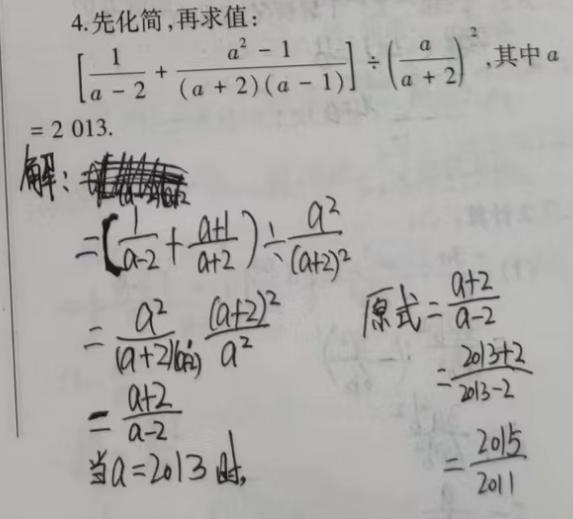 4.先化简,再求值:
[1/(a-2) + (a²-1)/((a+2)(a-1))] ÷ (a/(a+2))²,其中a
=2 013.
解:
=(1/(a-2) + (a+1)/(a+2)) ÷ a²/(a+2)²
= a²/((a+2)(a-2)) · (a+2)²/a²
= (a+2)/(a-2)
当a=2013时,
原式=(a+2)/(a-2)
=(2013+2)/(2013-2)
=2015/2011